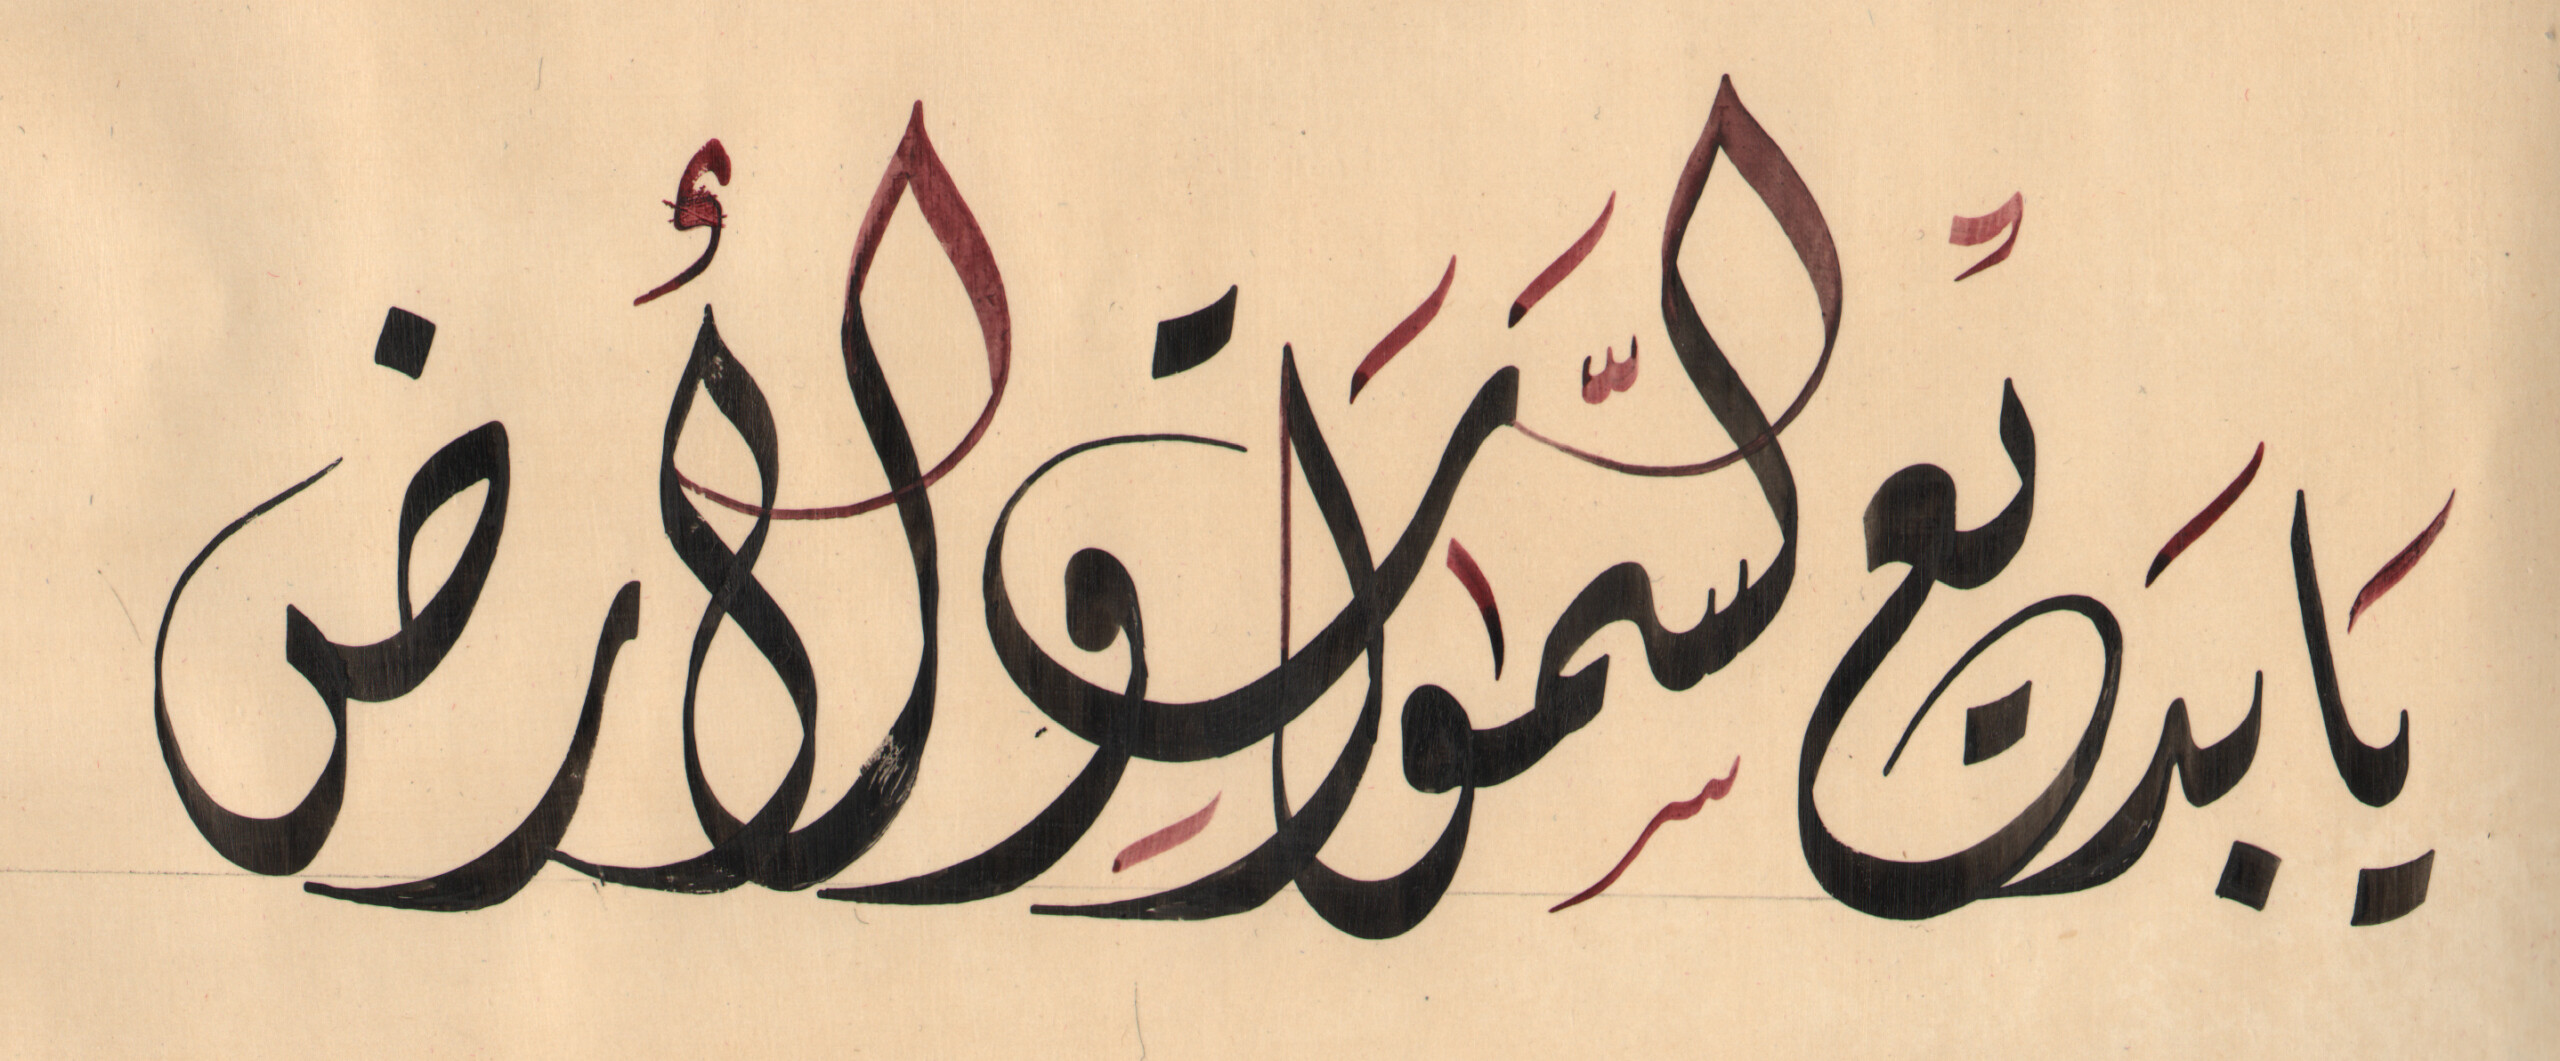 يَا بَدِيعُ السَّمٰوَاتِ وَالأرض